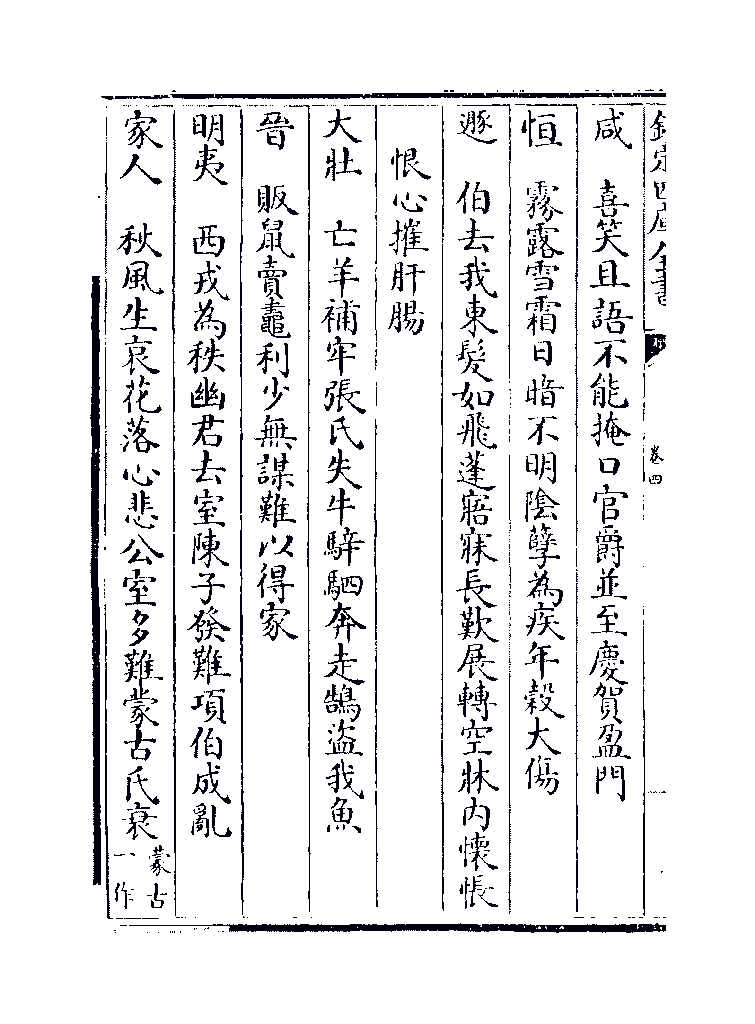 欽定四庫全書
卷四
咸　喜笑且語不能掩口官爵並至慶賀盈門
恒　霧露雪霜日暗不明陰孽為疾年穀大傷
遯　伯去我東髮如飛蓬寤寐長歎展轉空牀内懷悵
恨心摧肝腸
大壯　亡羊補牢張氏失牛騂駟奔走鵠盜我魚
晉　販鼠賣鼃利少無謀難以得家
明夷　西戎為秩幽君去室陳子發難項伯成亂
家人　秋風生哀花落心悲公室多難蒙古氏衰蒙古一作